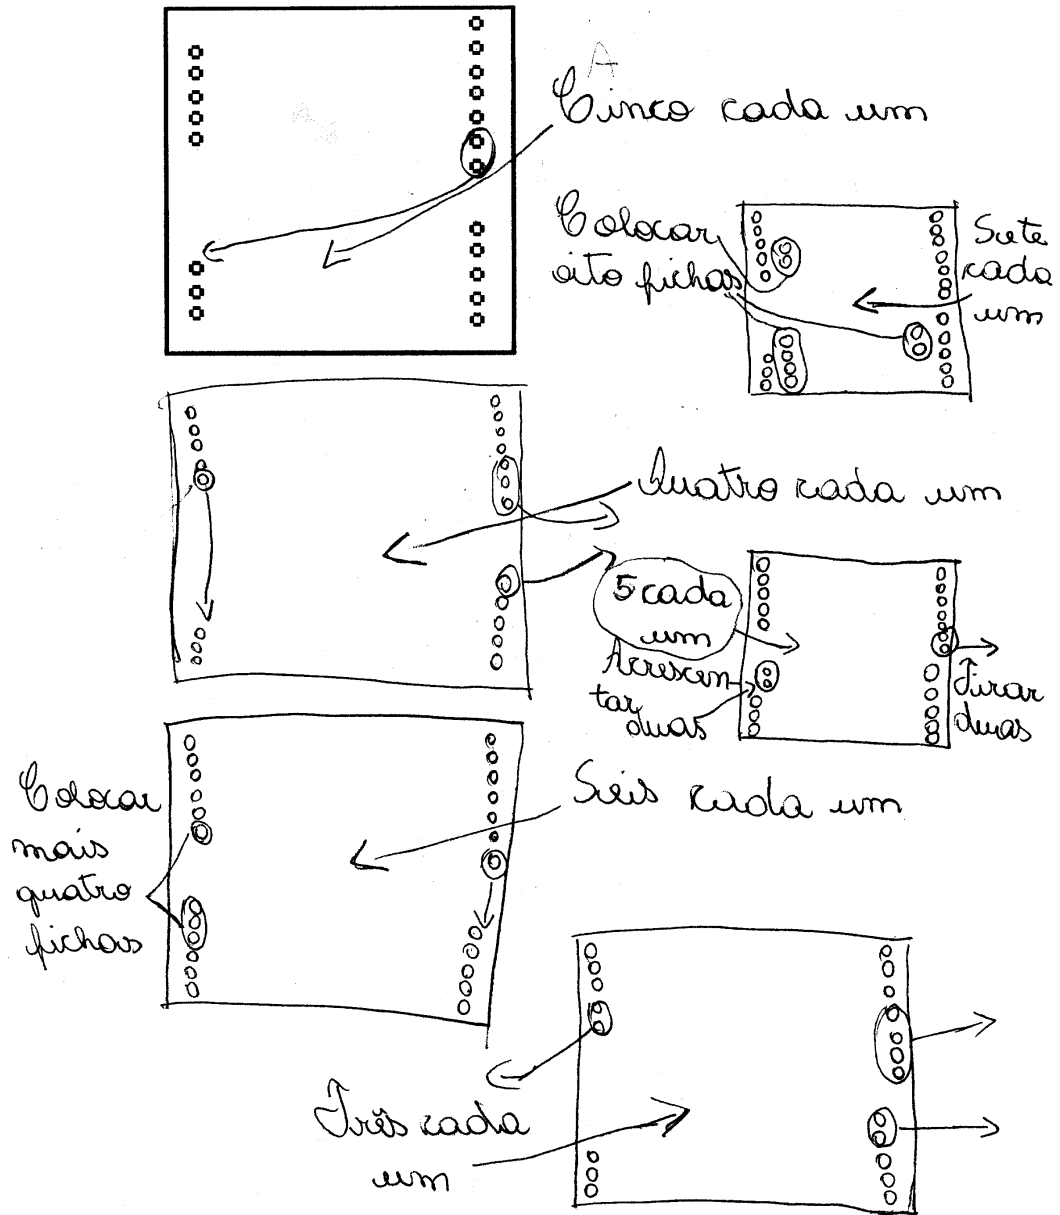 A
Cinco cada um
Colocar
oito fichas
Sete
cada
um
Quatro cada um
5 cada
um
Acrescen
tar
duas
Tirar
duas
Colocar
mais
quatro
fichas
Seis cada um
Três cada
um